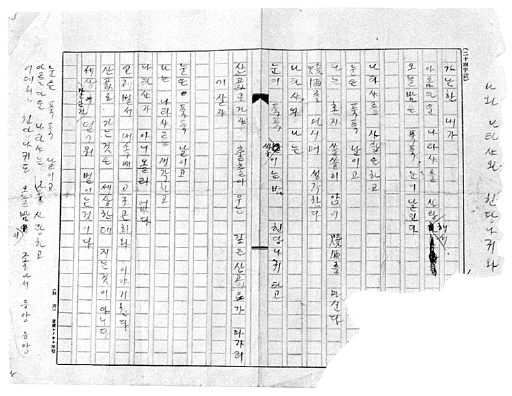 나와 나타샤와 힌당나귀와
(二十四字詰)
가난한 내가
아름다운 나타샤를 사랑해서
오늘밤은 푹푹 눈이 날린다
나타샤를 사랑은하고
눈은 푹푹 날이고
나는 혼자 쓸쓸히 앉어 燒酒를 마신다
燒酒를 마시며 생각한다
나타샤와 나는
눈이 푹푹 쌓이는밤 힌당나귀 타고
산골로가쟈 출출이 우는 깊은산골로가 마가리
에 살쟈
눈은 푹푹 날이고
나는 나타샤를 생각하고
나타샤가 아니올리 없다
언제벌서 내속에 고조곤히와 이야기한다
산골로 가는것은 세상한테 지는것이아니다
세상같은건 더러워 벌이는것이다
눈은 푹푹 날이고
아름다운 나타샤는 나를 사랑하고
어데서 힌당나귀도 오늘밤이 좋아서 응앙 응앙